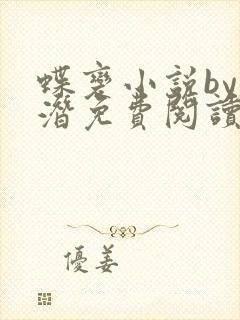 蝶褁小说by
潜免费阅读
優姜